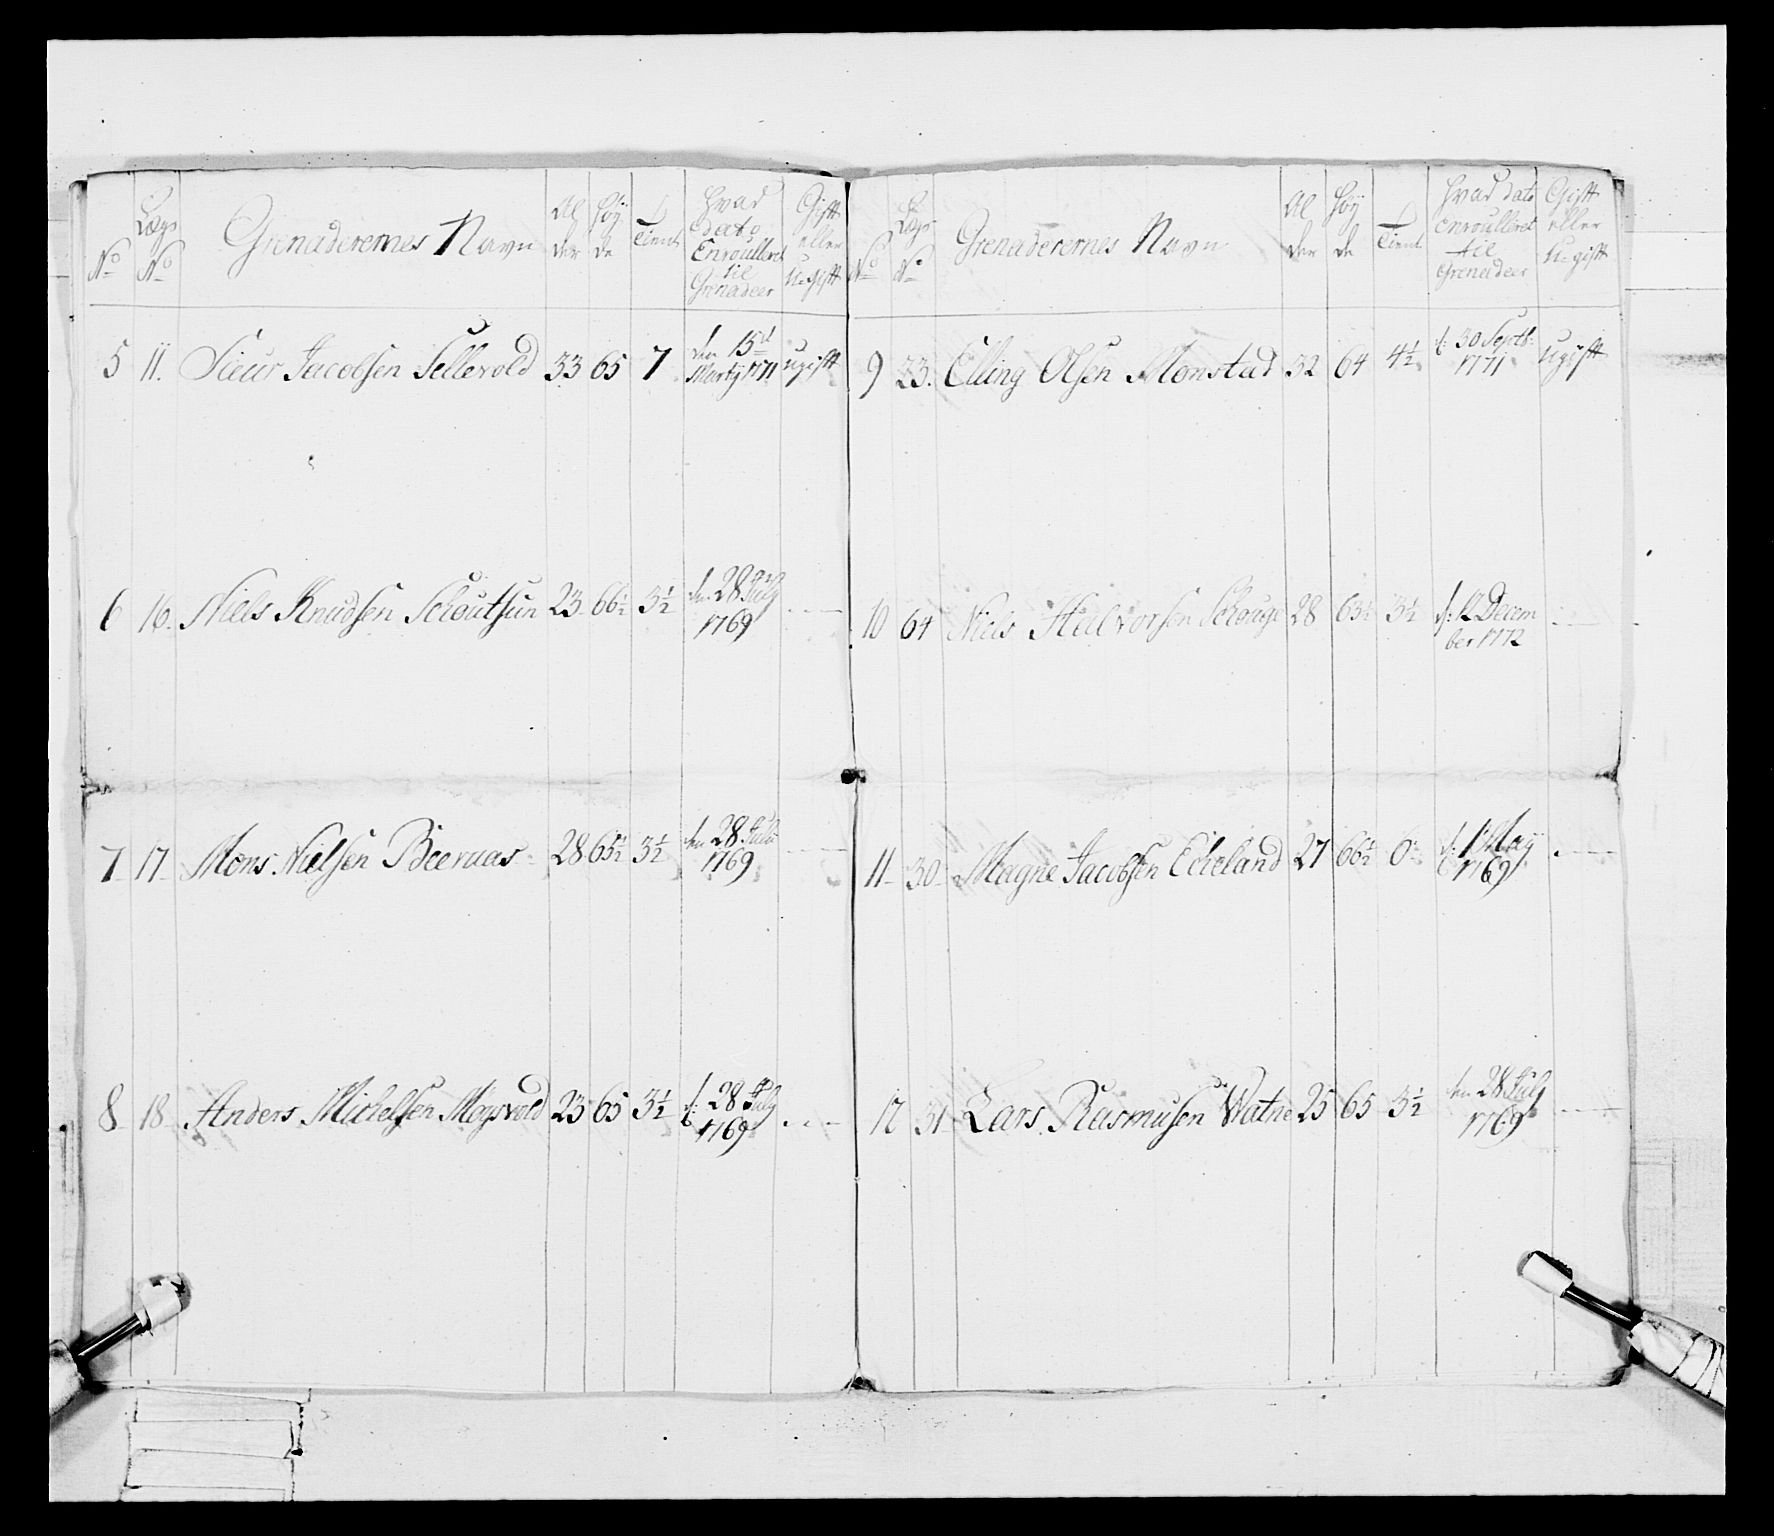 No Lægs No Grenaderernes Navn Al der Høy de Tient Hvad dato Enroulleret til Grenadeer Gift eller U-gift
5 11. Siur Jacobsen Sellevold 33 65 7 den 15d Martÿ 1771 ugift
6 16. Niels Knudsen Schoutsun 23 66½ 3½ den 28 July 1769 - - -
7 17 Mons Nielsen Beeraas 28 65½ 3½ den 28 July 1769 - - -
8 18 Anders Michelsen Mogsvold 23 65 3½ d: 28 July 1769 - - -
No Lægs No Grenaderernes Navn Al der Høy de Tient Hvad dato enroulleret til Grenadeer Gift eller U-gift
9 23. Elling Olsen Monstad 32 64 4½ d: 30 Septb: 1771 Ugift
10 64 Niels Halvorsen Schouge 28 63½ 3½ d: 12 Decem
ber 1772 - - -
11 30 Magne Jacobsen Echeland 27 66½ 6 d: 1 May 1769 - - -
12 31 Lars Rasmusen Watne 25 65 3½ den 28 July 1769 - - -